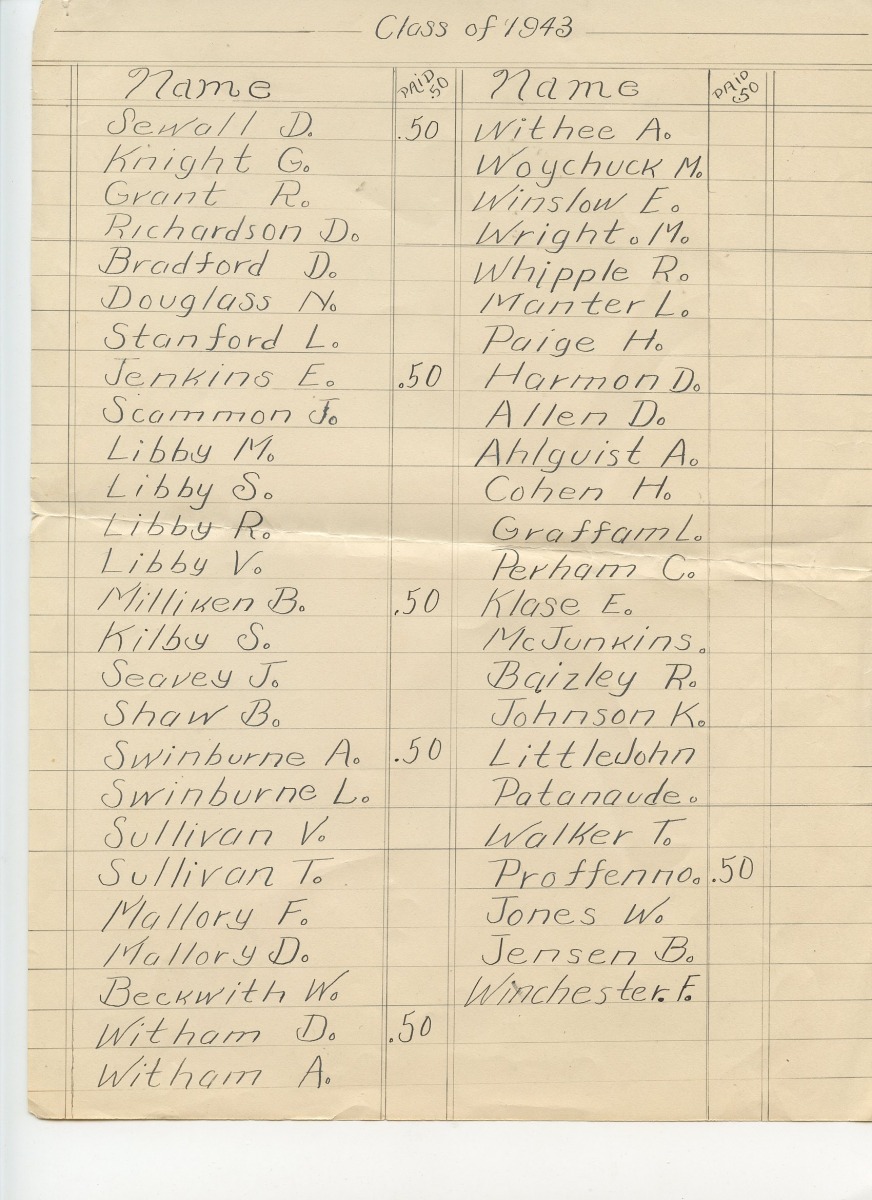 Class of 1943
Name PAID .50
Sewall D. .50
Knight G.
Grant R.
Richardson D.
Bradford D.
Douglass N.
Stanford L.
Jenkins E. .50
Scammon J.
Libby M.
Libby S.
Libby R.
Libby V.
Milliken B. .50
Kilby S.
Seavey J.
Shaw B.
Swinburne A. .50
Swinburne L.
Sullivan V.
Sullivan T.
Mallory F.
Mallory D.
Beckwith W.
Witham D. .50
Witham A.
Name PAID .50
Withee A.
Woychuck M.
Winslow E.
Wright. M.
Whipple R.
Manter L.
Paige H.
Harmon D.
Allen D.
Ahlquist A.
Cohen H.
Graffam L.
Perham C.
Klase E.
McJunkins.
Baizley R.
Johnson K.
LittleJohn
Patanaude.
Walker T.
Proffenno. .50
Jones W.
Jensen B.
Winchester. F.